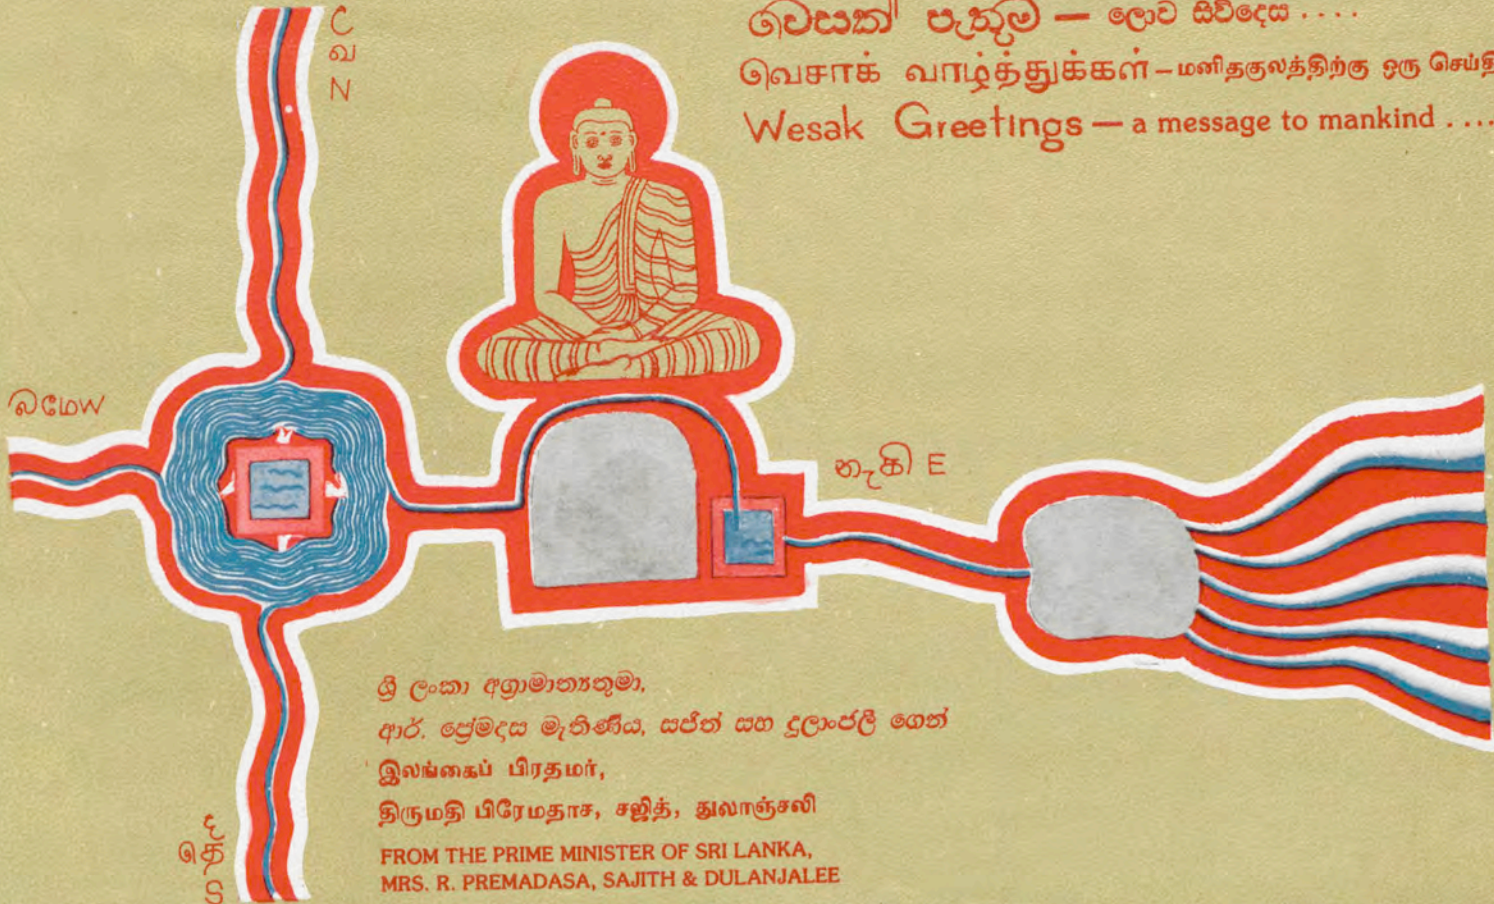 උ
வ
N
වෙසක් පැතුම් — ලොව සිව්දෙස ....
வெசாக் வாழ்த்துக்கள் – மனிதகுலத்திற்கு ஒரு செய்தி
Wesak Greetings — a message to mankind ....
බ மே W
නැ கி E
ශ්‍රී ලංකා අග්‍රාමාත්‍යතුමා,
ආර්. ප්‍රේමදාස මැතිණිය, සජිත් සහ දුලාංජලී ගෙන්
இலங்கைப் பிரதமர்,
திருமதி பிரேமதாச, சஜித், துலாஞ்சலி
FROM THE PRIME MINISTER OF SRI LANKA,
MRS. R. PREMADASA, SAJITH & DULANJALEE
ද
தெ
S